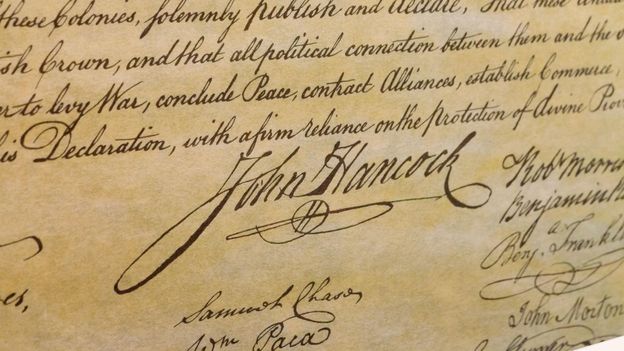 these Colonies, solemnly publish and declare, That these United
ish Crown, and that all political connection between them and the
er to levy War, conclude Peace, contract Alliances, establish Commerce,
is Declaration, with a firm reliance on the protection of divine Prov
John Hancock
Robt Morris
Benjamin R
Benj. Franklin
Samuel Chase
Wm Paca
John Morton